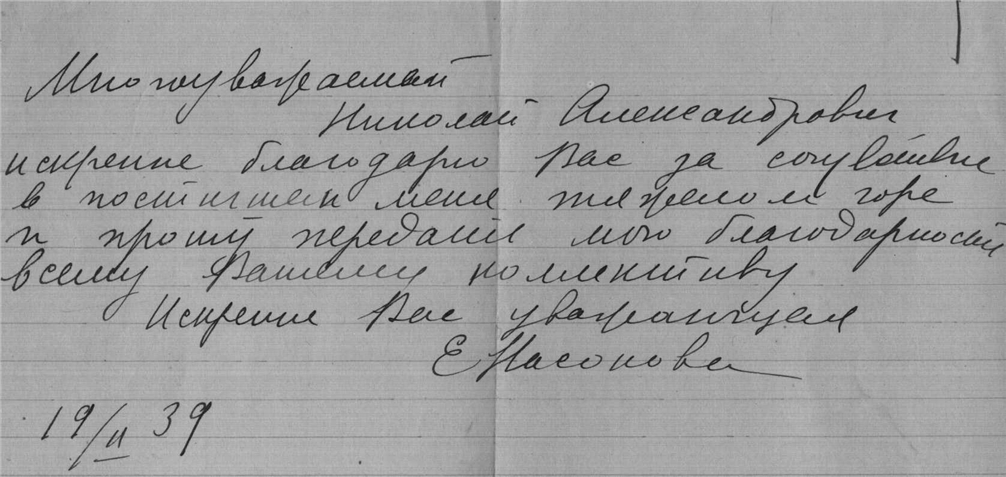 Многоуважаемый
Николай Александрович
искренне благодарю Вас за сочувствие
в постигшем меня тяжелом горе
и прошу передать мою благодарность
всему Вашему коллективу
Искренне Вас уважающая
Е Насонова
19/II 39